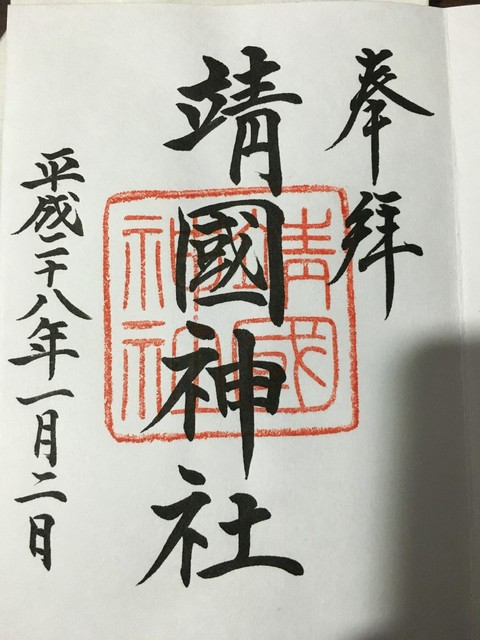 奉拜
靖國神社
平成二十八年一月二日
靖國
神社